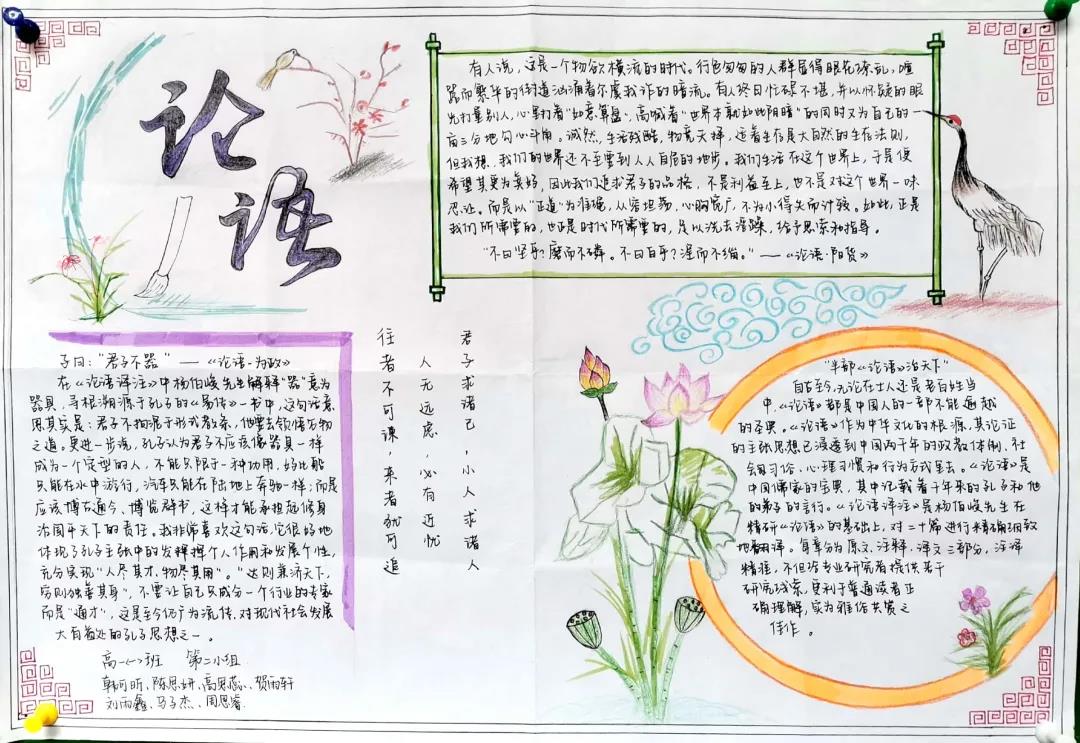 论语
有人说，这是一个物欲横流的时代。行色匆匆的人群显得眼花缭乱，喧
嚣而繁华的街道汹涌着尔虞我诈的暗流。有人终日忙碌不堪，并以怀疑的眼
光打量别人，心里打着"如意算盘"，高喊着"世界本就如此阴暗"的同时又为自己的
亩三分地勾心斗角。诚然，生活残酷，物竞天择，适者生存是大自然的生存法则，
但我想，我们的世界还不至要到人人自危的地步。我们生活在这个世界上，于是便
希望其更为美好，因此我们追求君子的品格，不是利益至上，也不是对这个世界一味
忍让。而是以"正道"为准绳，从容坦荡，心胸宽广，不为小得失而计较。如此，正是
我们所需要的，也正是时代所需要的，足以洗去浮躁，给予思索和指导。
"不曰坚乎？磨而不磷。不曰白乎？涅而不缁。"——《论语·阳货》
子曰："君子不器"——《论语·为政》
在《论语译注》中杨伯峻先生解释"器"意为
器具，寻根溯源于孔子的《易传》一书中，这句话意
思其实是：君子不拘泥于形式教条，他要去领悟万物
之道。更进一步说，孔子认为君子不应该像器具一样
成为一个定型的人，不能只限于一种功用，好比船
只能在水中游行，汽车只能在陆地上奔驰一样；而是
应该博古通今、博览群书，这样才能承担起修身
治国平天下的责任。我非常喜欢这句话，它很好地
体现了孔子主张中的发挥个人作用和发展个性，
充分实现"人尽其才，物尽其用"。"达则兼济天下，
穷则独善其身"，不要让自己只成为一个行业的专家
而是"通才"，这是至今仍广为流传，对现代社会发展
大有益处的孔子思想之一。
高一(一)班 第二小组
韩可昕、陈思妍、高思蕊、贺雨轩
刘雨鑫、马子杰、周思睿
君子求诸己，小人求诸人
人无远虑，必有近忧
往者不可谏，来者犹可追
"半部《论语》治天下"
自古至今，无论在士人还是老百姓当
中，《论语》都是中国人的一部不能逾越
的圣典。《论语》作为中华文化的根源，其论证
的主张思想已浸透到中国两千年的政教体制、社
会习俗、心理习惯和行为方式里去。《论语》是
中国儒家的宝典，其中记载着千年来的孔子和他
的弟子的言行。《论语译注》是杨伯峻先生在
精研《论语》的基础上，对二十篇进行精确细致
地翻译。每章分为原文、注释、译文三部分，注译
精准，不但给专业研究者提供若干
研究线索，更利于普通读者正
确理解，实为雅俗共赏之
佳作。